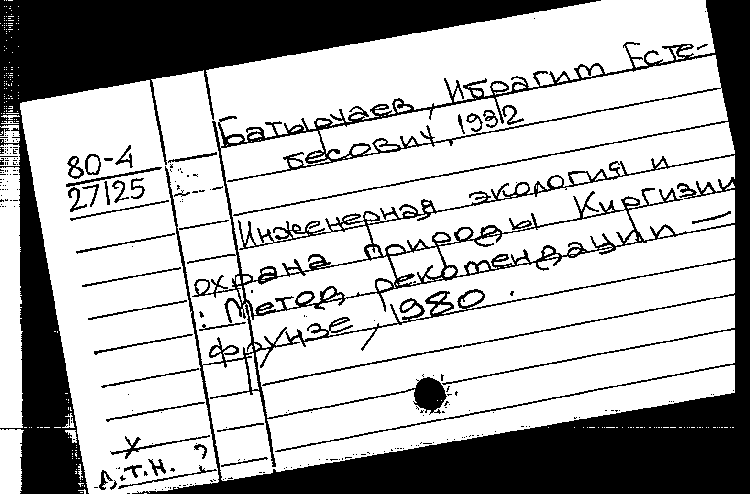 80-4
27125
Батырчаев, Ибрагим Есте-
бесович, 1932
Инженерная экология и
охрана природы Киргизии
: Метод. рекомендации —
Фрунзе, 1980.
х
Д.Т.Н. ?